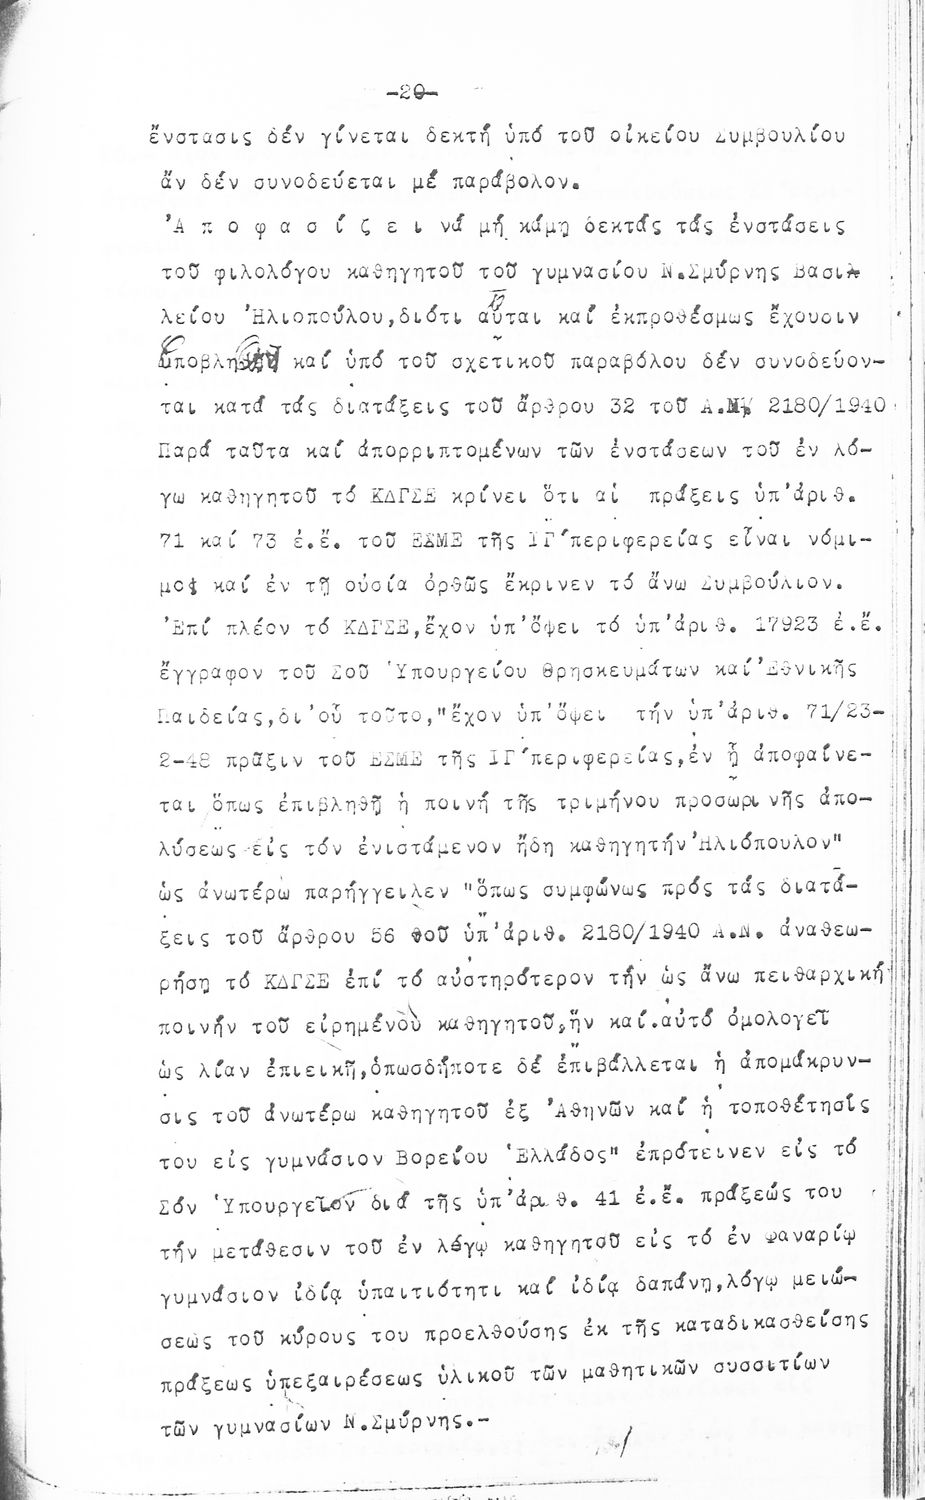 -20-
ἔνστασις δέν γίνεται δεκτή ὑπό τοῦ οἰκείου Συμβουλίου
ἄν δέν συνοδεύεται μέ παράβολον.
Ἀ π ο φ α σ ί ζ ε ι νά μή κάμῃ δεκτάς τάς ἐνστάσεις
τοῦ φιλολόγου καθηγητοῦ τοῦ γυμνασίου Ν.Σμύρνης Βασι
λείου Ἡλιοπούλου,διότι αὗται καί ἐκπροθέσμως ἔχουσιν
ὑποβληθῆ καί ὑπό τοῦ σχετικοῦ παραβόλου δέν συνοδεύον-
ται κατά τάς διατάξεις τοῦ ἄρθρου 32 τοῦ Α.Ν. 2180/1940
Παρά ταῦτα καί ἀπορριπτομένων τῶν ἐνστάσεων τοῦ ἐν λό-
γω καθηγητοῦ τό ΚΔΓΣΕ κρίνει ὅτι αἱ πράξεις ὑπ'ἀριθ.
71 καί 73 ἐ.ἔ. τοῦ ΕΣΜΕ τῆς ΙΓ'περιφερείας εἶναι νόμι-
μοι καί ἐν τῇ οὐσία ὀρθῶς ἔκρινεν τό ἄνω Συμβούλιον.
Ἐπί πλέον τό ΚΔΓΣΕ,ἔχον ὑπ'ὄψει τό ὑπ'ἀριθ. 17923 ἐ.ἔ.
ἔγγραφον τοῦ Σοῦ Ὑπουργείου Θρησκευμάτων καί Ἐθνικῆς
Παιδείας,δι'οὗ τοῦτο,"ἔχον ὑπ'ὄψει τήν ὑπ'ἀριθ. 71/23-
2-48 πρᾶξιν τοῦ ΕΣΜΕ τῆς ΙΓ'περιφερείας,ἐν ᾗ ἀποφαίνε-
ται ὅπως ἐπιβληθῇ ἡ ποινή τῆς τριμήνου προσωρινῆς ἀπο-
λύσεως εἰς τόν ἐνιστάμενον ἤδη καθηγητήν Ἡλιόπουλον"
ὡς ἀνωτέρω παρήγγειλεν "ὅπως συμφώνως πρός τάς διατά-
ξεις τοῦ ἄρθρου 56 τοῦ ὑπ'ἀριθ. 2180/1940 Α.Ν. ἀναθεω-
ρήσῃ τό ΚΔΓΣΕ ἐπί τό αὐστηρότερον τήν ὡς ἄνω πειθαρχική
ποινήν τοῦ εἰρημένου καθηγητοῦ,ἥν καί.αὐτό ὁμολογεῖ
ὡς λίαν ἐπιεικῆ,ὁπωσδήποτε δέ ἐπιβάλλεται ἡ ἀπομάκρυν-
σις τοῦ ἀνωτέρω καθηγητοῦ ἐξ Ἀθηνῶν καί ἡ τοποθέτησίς
του εἰς γυμνάσιον Βορείου Ἑλλάδος" ἐπρότεινεν εἰς τό
Σόν Ὑπουργεῖον διά τῆς ὑπ'ἀριθ. 41 ἐ.ἔ. πράξεώς του
τήν μετάθεσιν τοῦ ἐν λόγῳ καθηγητοῦ εἰς τό ἐν Φαναρίῳ
γυμνάσιον ἰδίᾳ ὑπαιτιότητι καί ἰδίᾳ δαπάνῃ,λόγῳ μειώ-
σεως τοῦ κύρους του προελθούσης ἐκ τῆς καταδικασθείσης
πράξεως ὑπεξαιρέσεως ὑλικοῦ τῶν μαθητικῶν συσσιτίων
τῶν γυμνασίων Ν.Σμύρνης.-